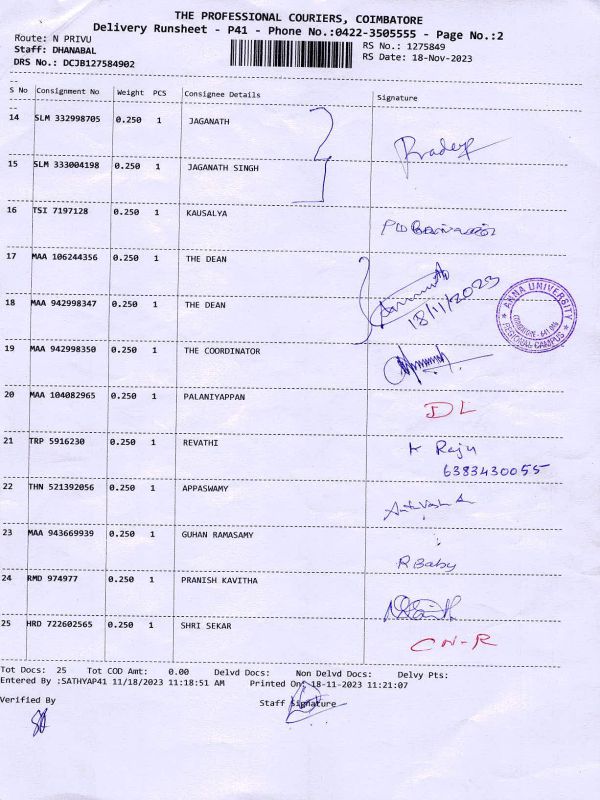 THE PROFESSIONAL COURIERS, COIMBATORE
Delivery Runsheet - P41 - Phone No.:0422-3505555 - Page No.:2
Route: N PRIVU
RS No.: 1275849
Staff: DHANABAL
RS Date: 18-Nov-2023
DRS No.: DCJB127584902
S No Consignment No Weight PCS Consignee Details Signature
14 SLM 332998705 0.250 1 JAGANATH
Pradeep
15 SLM 333004198 0.250 1 JAGANATH SINGH
16 TSI 7197128 0.250 1 KAUSALYA
17 MAA 106244356 0.250 1 THE DEAN
18 MAA 942998347 0.250 1 THE DEAN
18/11/2023
ANNA UNIVERSITY
COIMBATORE - 641 046
REGIONAL CAMPUS
19 MAA 942998350 0.250 1 THE COORDINATOR
20 MAA 104082965 0.250 1 PALANIYAPPAN
DL
21 TRP 5916230 0.250 1 REVATHI
K Raju
6383430055
22 THN 521392056 0.250 1 APPASWAMY
23 MAA 943669939 0.250 1 GUHAN RAMASAMY
R Baby
24 RMD 974977 0.250 1 PRANISH KAVITHA
25 HRD 722602565 0.250 1 SHRI SEKAR
CN-R
Tot Docs: 25 Tot COD Amt: 0.00 Delvd Docs: Non Delvd Docs: Delvy Pts:
Entered By :SATHYAP41 11/18/2023 11:18:51 AM Printed On: 18-11-2023 11:21:07
Verified By Staff Signature